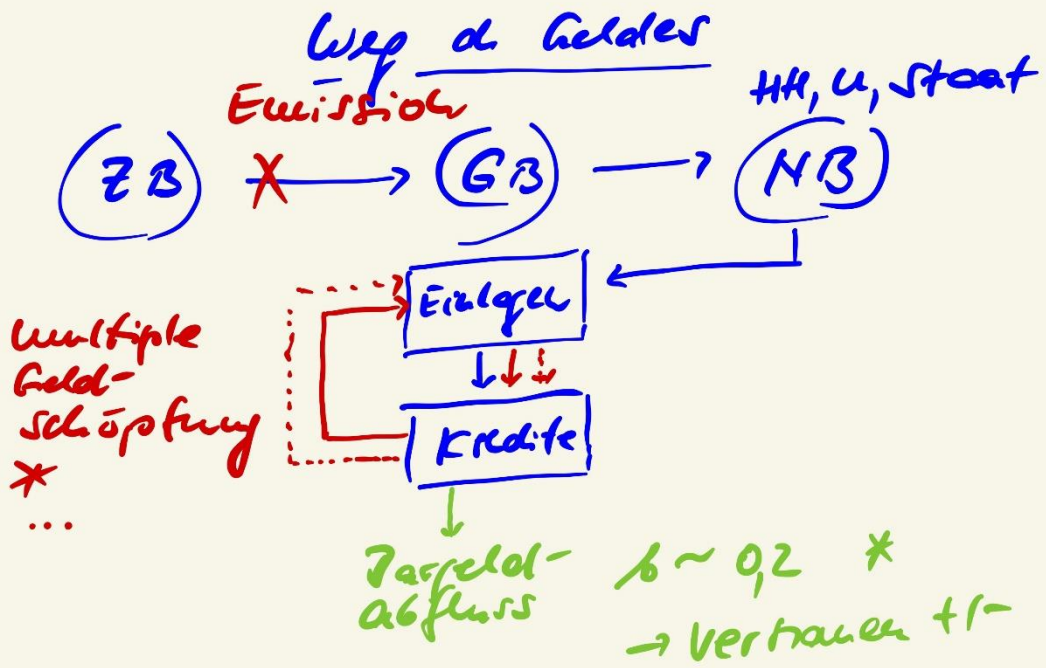 Weg d. Geldes
HH, U, Staat
Emission
ZB X → GB → NB
Einlagen
multiple
Geld-
schöpfung
*
...
Kredite
Bargeld-
abfluss
b ~ 0,2 *
→ Vertrauen +/-